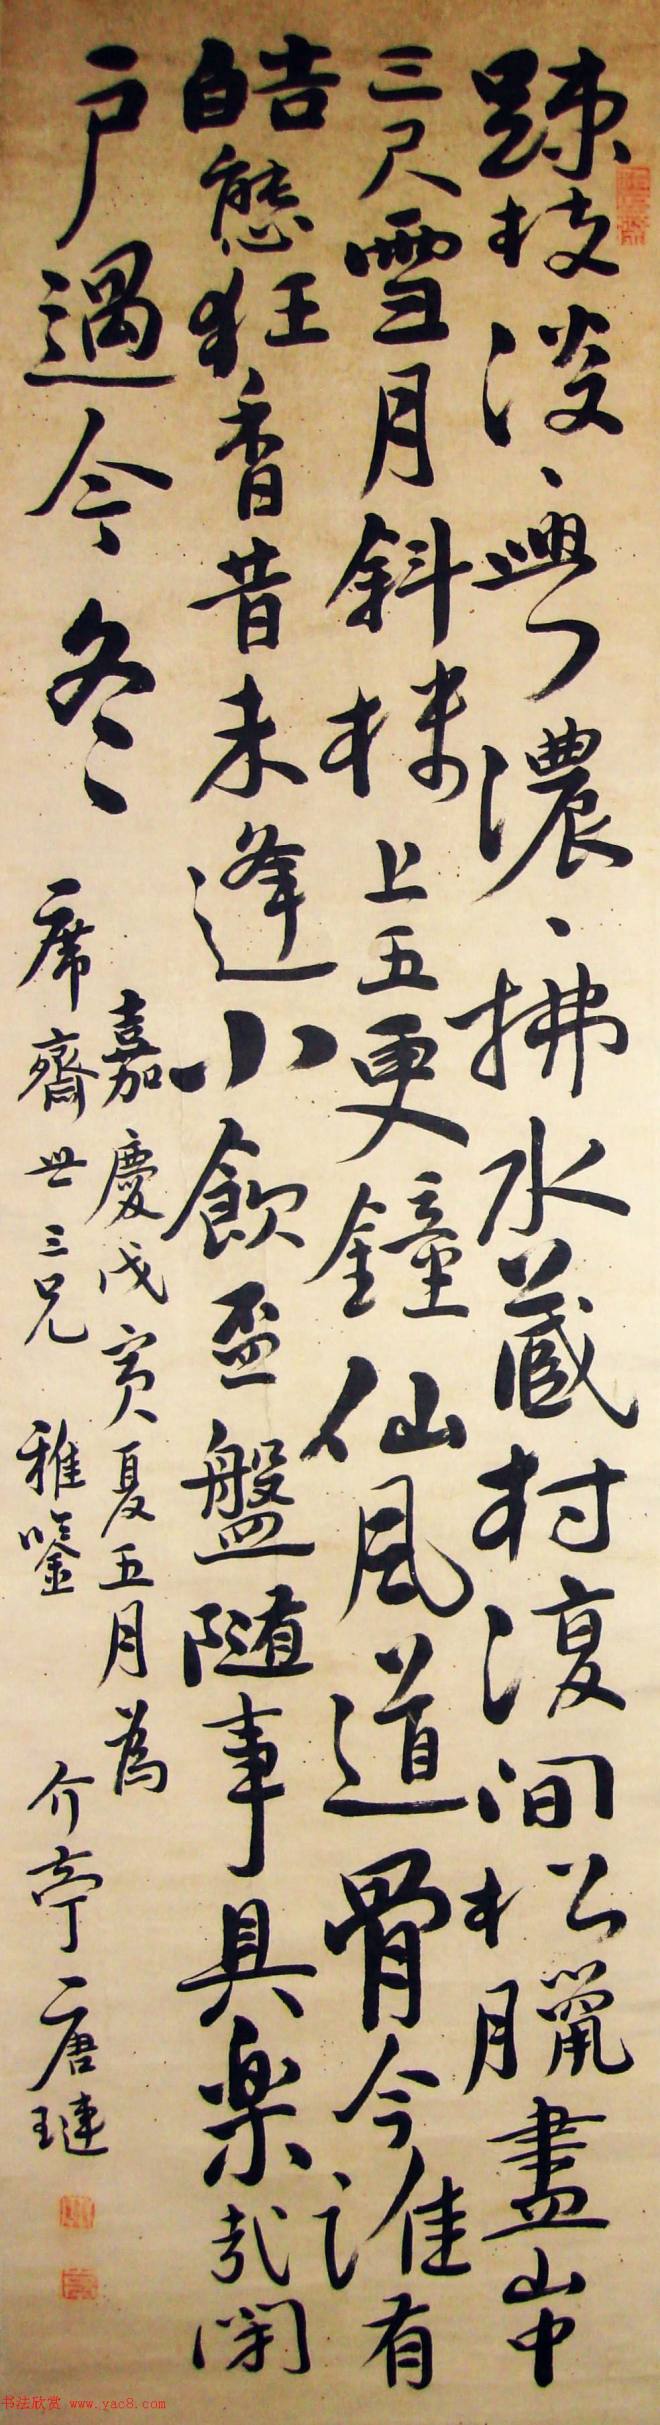 踈枝淡丶與濃丶拂水藏村復间松臘盡山中
三尺雪月斜楼上五更鐘仙风道骨今谁有
皓態狂香昔未逢小飲盃盤随事具楽哉閑
户過今冬
嘉慶戊寅夏五月為
席齋世三兄 雅鑒 介亭唐璉
书法欣赏 www.yac8.com